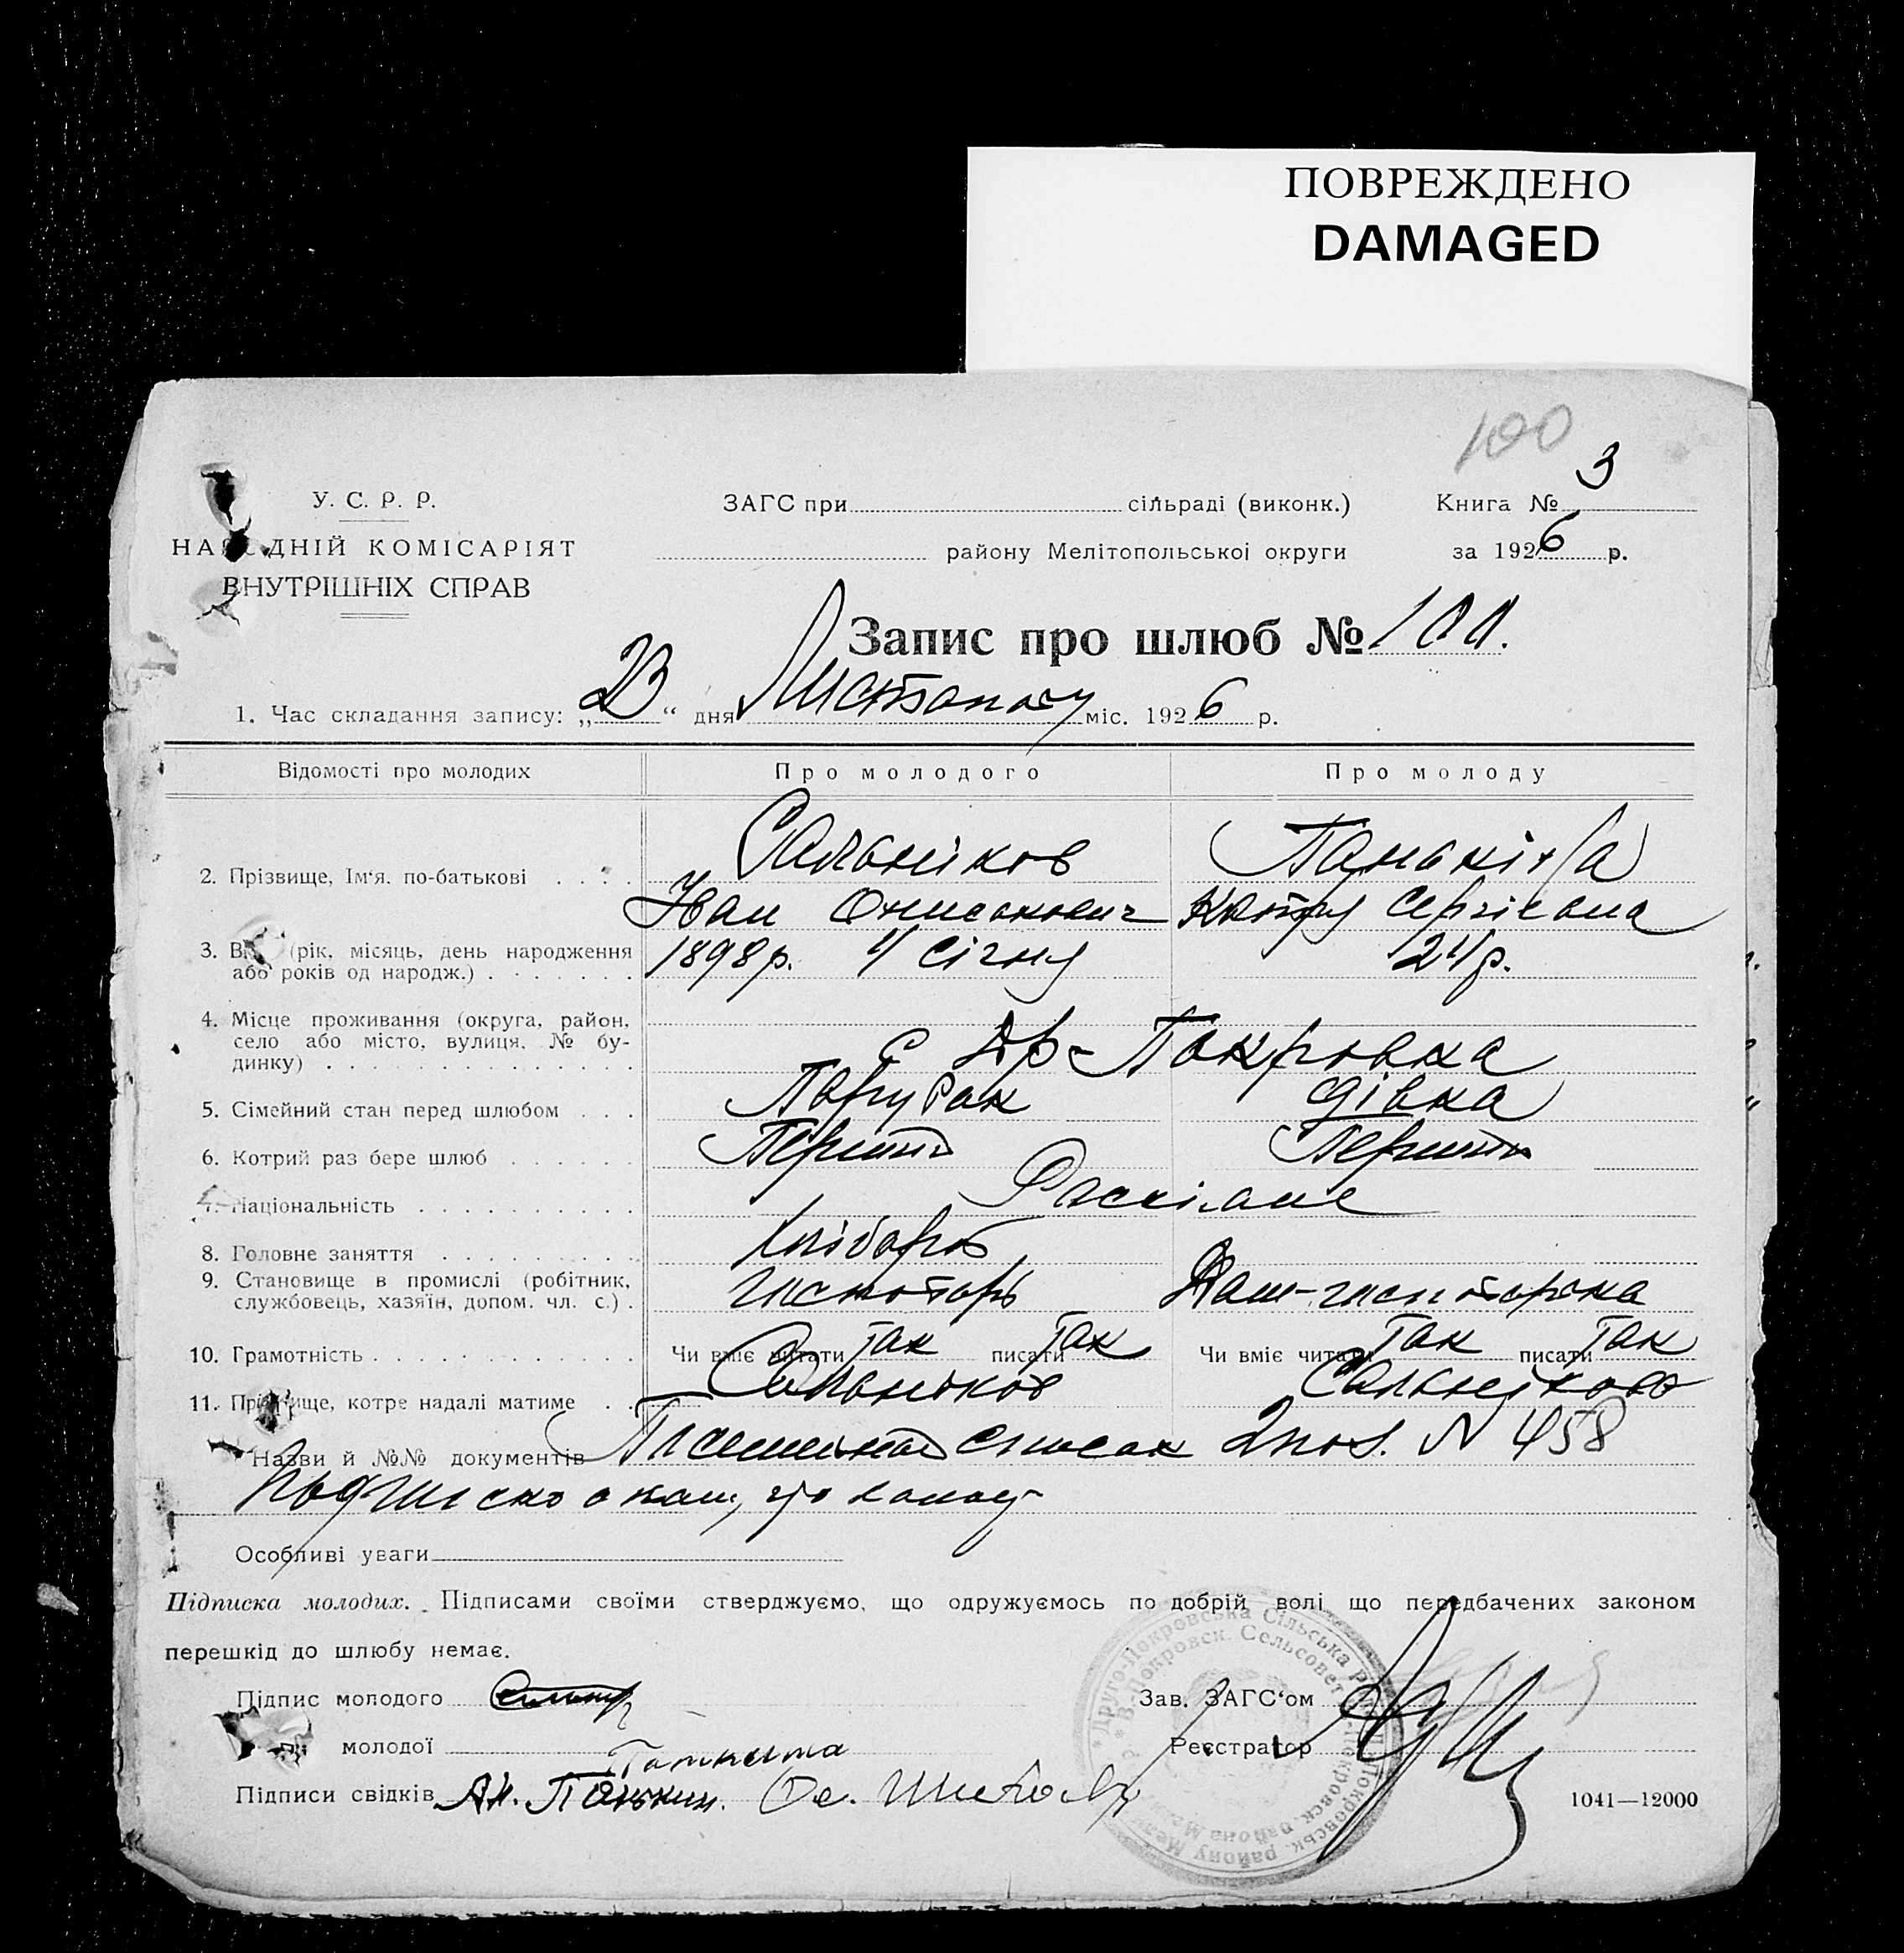 ПОВРЕЖДЕНО
DAMAGED
100
У. С. Р. Р.
НАРОДНІЙ КОМІСАРІЯТ
ВНУТРІШНІХ СПРАВ
ЗАГС при сільраді (виконк.)
району Мелітопольської округи
Книга № 3
за 1926 р.
Запис про шлюб № 100.
1. Час складання запису: „23“ дня Листопаду міс. 1926 р.
Відомості про молодих Про молодого Про молоду
2. Прізвище, Ім'я. по-батькові Сальніков Панькіна
Іван Катря Сергієвна
3. Вік (рік, місяць, день народження або років од народж.) 1898р. 4 Січня 24р.
4. Місце проживання (округа, район, село або місто, вулиця, № будинку) С Др-Покровка
5. Сімейний стан перед шлюбом Парубок дівка
6. Котрий раз бере шлюб Перший Перший
7. Національність
8. Головне заняття Хлібороб
9. Становище в промислі (робітник, службовець, хазяїн, допом. чл. с.)
10. Грамотність Чи вміє читати так писати так Чи вміє читати так писати так
11. Прізвище, котре надалі матиме Сальніков Сальнікова
Назви й №№ документів список № 458
Особливі уваги
Підписка молодих. Підписами своїми стверджуємо, що одружуємось по добрій волі що передбачених законом
перешкід до шлюбу немає.
Підпис молодого
молодої
Підписи свідків Ан. Панькин.
Зав. ЗАГС'ом
Реєстратор
1041—12000